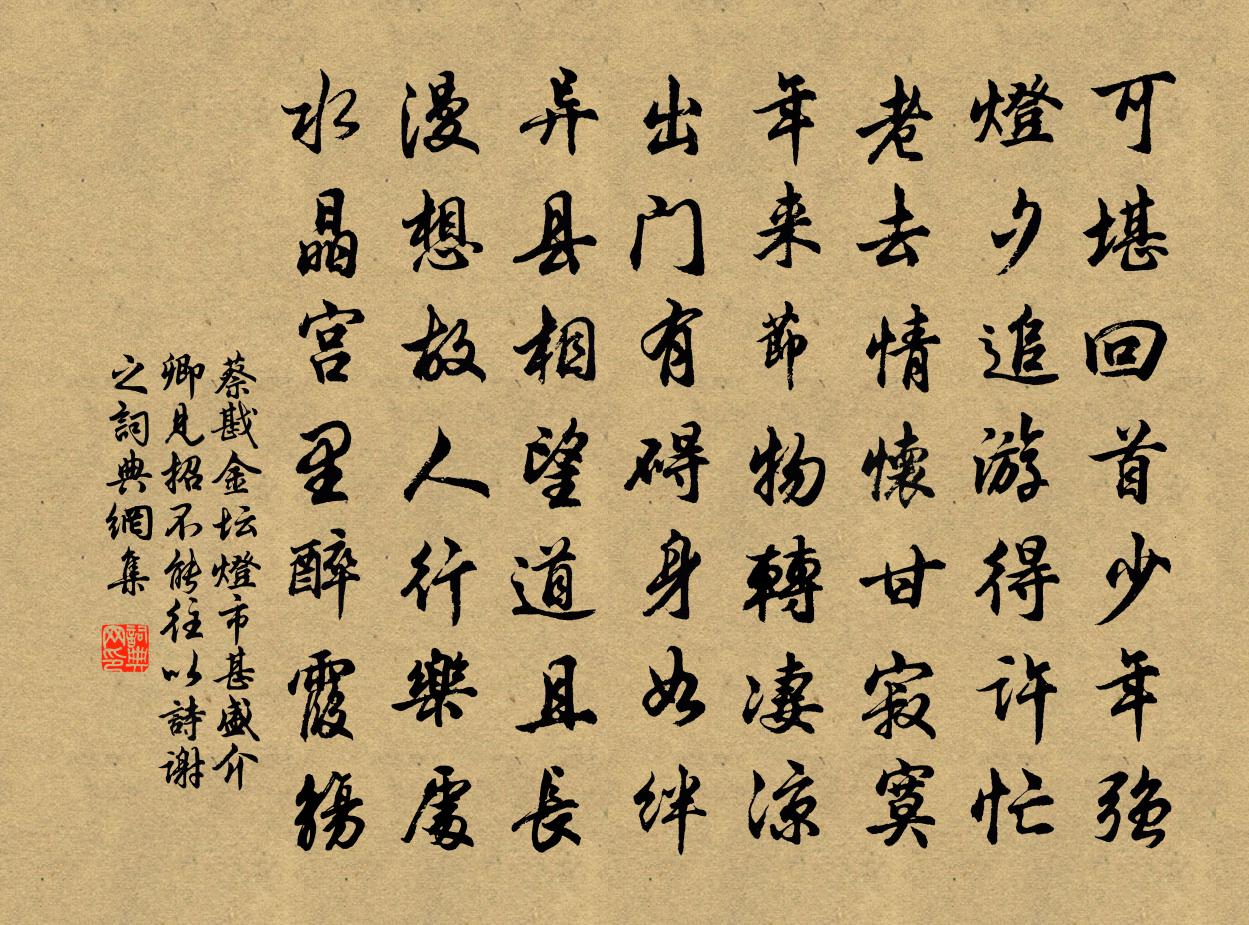 可堪回首少年强
燈夕追游得许忙
老去情懷甘寂寞
年来節物轉凄涼
出门有碍身如绊
异县相望道且長
漫想故人行樂處
水晶宫里醉霞觴
蔡戡金坛燈市甚盛介
卿見招不能往以詩谢
之詞典網集
詞典网印